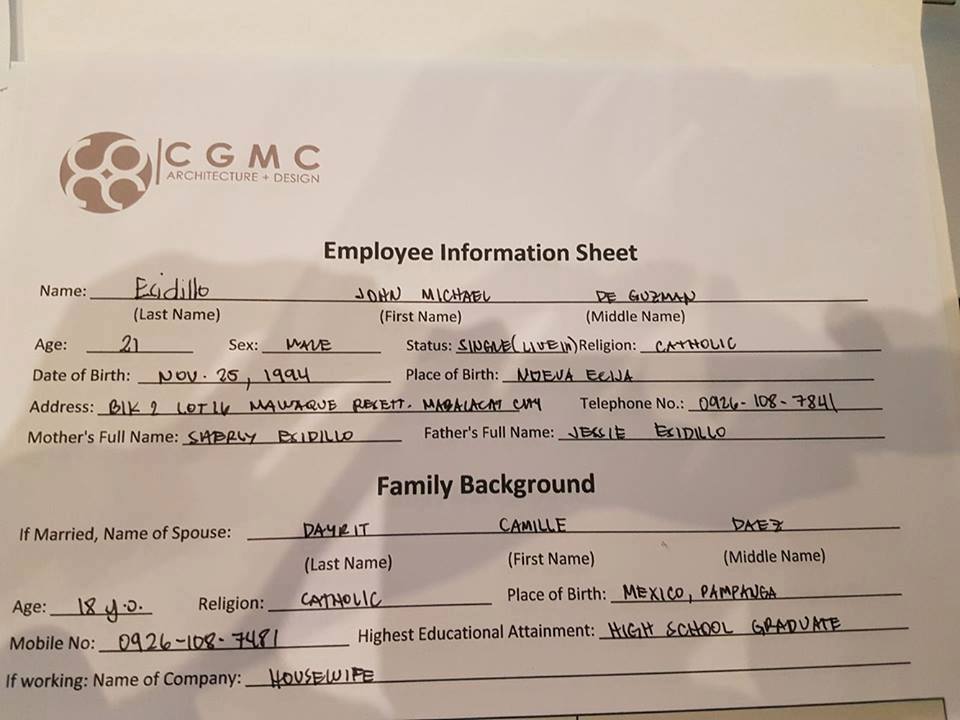 CGMC
ARCHITECTURE + DESIGN
Employee Information Sheet
Name: Ecidillo JOHN MICHAEL DE GUZMAN
(Last Name) (First Name) (Middle Name)
Age: 21 Sex: MALE Status: SINGLE (LIVE IN) Religion: CATHOLIC
Date of Birth: NOV. 25, 1994 Place of Birth: NUEVA ECIJA
Address: BlK 2 LOT 16 MAWAQUE RESETT. MABALACAT CITY Telephone No.: 0926-108-7841
Mother's Full Name: SHERLY ECIDILLO Father's Full Name: JESSIE ECIDILLO
Family Background
If Married, Name of Spouse: DAYRIT CAMILLE DAEZ
(Last Name) (First Name) (Middle Name)
Age: 18 y.o. Religion: CATHOLIC Place of Birth: MEXICO, PAMPANGA
Mobile No: 0926-108-7481 Highest Educational Attainment: HIGH SCHOOL GRADUATE
If working: Name of Company: HOUSEWIFE